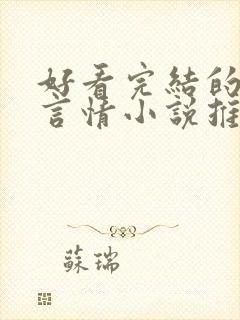 好看完結的
言情小說推
蘇瑞